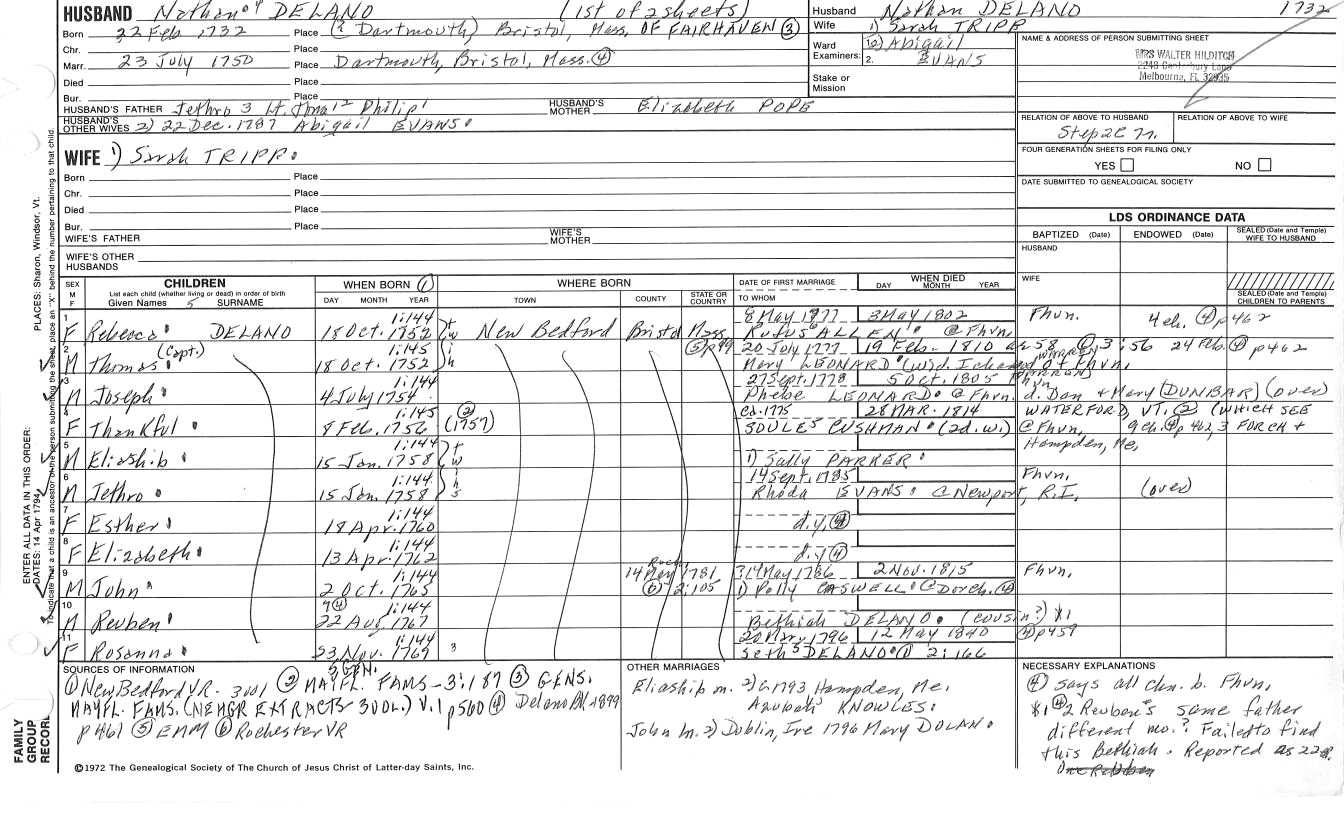 HUSBAND Nathan DELANO (1st of 2 sheets)
Born 22 Feb 1732 Place (? Dartmouth) Bristol, Mass. OF FAIRHAVEN (3)
Chr. Place
Marr. 23 July 1750 Place Dartmouth, Bristol, Mass. (4)
Died Place
Bur. Place
HUSBAND'S FATHER Jethro 3 Lt. Jona 2 Philip 1 HUSBAND'S MOTHER Elizabeth POPE
HUSBAND'S OTHER WIVES 2) 22 Dec. 1787 Abigail EVANS.
Husband Nathan DELANO 1732
Wife 1) Sarah TRIPP
Ward Examiners: 1. (2) Abigail
2. EVANS
Stake or Mission
NAME & ADDRESS OF PERSON SUBMITTING SHEET
MRS WALTER HILDITCH
Melbourne, FL 32935
RELATION OF ABOVE TO HUSBAND RELATION OF ABOVE TO WIFE
Step 2C
FOUR GENERATION SHEETS FOR FILING ONLY
YES NO
DATE SUBMITTED TO GENEALOGICAL SOCIETY
WIFE 1) Sarah TRIPP.
Born Place
Chr. Place
Died Place
Bur. Place
WIFE'S FATHER WIFE'S MOTHER
WIFE'S OTHER HUSBANDS
LDS ORDINANCE DATA
BAPTIZED (Date) ENDOWED (Date) SEALED (Date and Temple) WIFE TO HUSBAND
HUSBAND
WIFE
SEALED (Date and Temple) CHILDREN TO PARENTS
SEX M F CHILDREN WHEN BORN (1) WHERE BORN DATE OF FIRST MARRIAGE WHEN DIED
List each child (whether living or dead) in order of birth
Given Names 5 SURNAME DAY MONTH YEAR TOWN COUNTY STATE OR COUNTRY TO WHOM DAY MONTH YEAR
1 1:144 8 May 1777 3 May 1802 Fhvn. 4 ch. (4) p462
F Rebecca DELANO 18 Oct. 1752 New Bedford Bristol Mass Rufus ALLEN @ Fhvn
2 (Capt.) 1:145 20 July 1777 19 Feb. 1810 3:56 24 Feb. (4) p462
M Thomas 18 Oct. 1752 Mary LEONARD (w) d. of Fhvn.
3 1:144 27 Sept. 1778 5 Oct. 1805 Fhvn
M Joseph 4 July 1754 Phebe LEONARD @ Fhvn. d. Dan + Mary (DUNBAR) (over)
4 1:145 (2) Ca. 1775 28 MAR. 1814 WATERFORD, VT. (2) (WHICH SEE
F Thankful 8 Feb. 1756 (1757) SOULE 5 CUSHMAN (2d. wi) @ Fhvn, 9 ch. (4) p 462, 3 FOR CH +
5 1:144 Hampden, Me,
M Eliashib 15 Jan. 1758 1) Sally PARKER
6 1:144 14 Sept. 1785 Fhvn,
M Jethro 15 Jan. 1758 Rhoda EVANS @ Newport, R.I. (over)
7 1:144
F Esther 18 Apr. 1760 d.y. (4)
8 1:144
F Elizabeth 13 Apr. 1762 d.y. (4)
9 1:144 Roch 14 May 1781 31 May 1786 2 Nov. 1815 Fhvn,
M John 2 Oct. 1765 (6) 2:105 1) Polly CASWELL @ Dorch. (4)
10 9 (4) 1:144
M Reuben 22 Aug 1767 Bethiah DELANO. (cousin?) *1
11 1:144 20 Mar. 1796 12 May 1840 (4) p459
F Rosanna 23 Nov. 1769 ? Seth 5 DELANO (1) 2:166
SOURCES OF INFORMATION
(1) New Bedford VR - 3 vol (2) MAYFL. FAMS - 3:187 (3) GENS.
5 GEN.
MAYFL. FAMS. (NEHGR EXTRACTS - 3 VOL.) V.1 p560 (4) Delano Bk. 1899
p 461 (5) EMM (6) Rochester VR
OTHER MARRIAGES
Eliaship m. 2) 6.1793 Hampden, Me.
Azubah KNOWLES.
John m. 2) Dublin, Ire 1796 Mary DOLAN.
NECESSARY EXPLANATIONS
(4) says all chn. b. Fhvn.
*1 (4) 2 Reuben's same father
different mo.? Failed to find
this Bethiah. Reported as 22
©1972 The Genealogical Society of The Church of Jesus Christ of Latter-day Saints, Inc.
FAMILY GROUP RECORD
ENTER ALL DATA IN THIS ORDER:
DATES: 14 Apr 1794
PLACES: Sharon, Windsor, Vt.
To indicate that a child is an ancestor of the person submitting the sheet, place an "X" behind the number pertaining to that child.